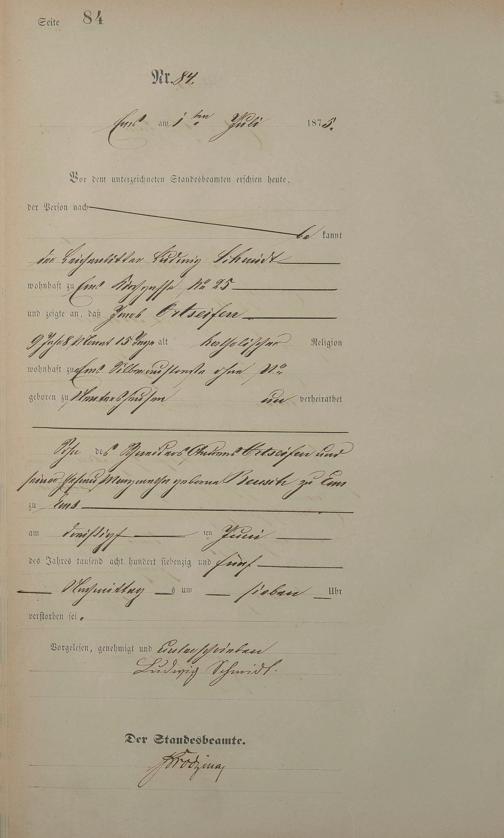 Seite 84
Nr. 84.
Ems am 1 ten Juli 1875.
Vor dem unterzeichneten Standesbeamten erschien heute,
der Person nach
be kannt
der Leichenbitter Ludwig Schmidt
wohnhaft zu Ems No 25
und zeigte an, daß Jacob Ortseifen
9 Jahr 8 Monat 15 Tage alt katholischer Religion
wohnhaft zu Ems Silberaustraße ohne No
geboren zu un verheirathet
Sohn des Ortseifen und
seiner Ehefrau geborne zu Ems
zu Ems
am dreißigsten Juni
des Jahres tausend acht hundert siebenzig und fünf
Nachmittag s um sieben Uhr
verstorben sei.
Vorgelesen, genehmigt und unterschrieben
Ludwig Schmidt.
Der Standesbeamte.